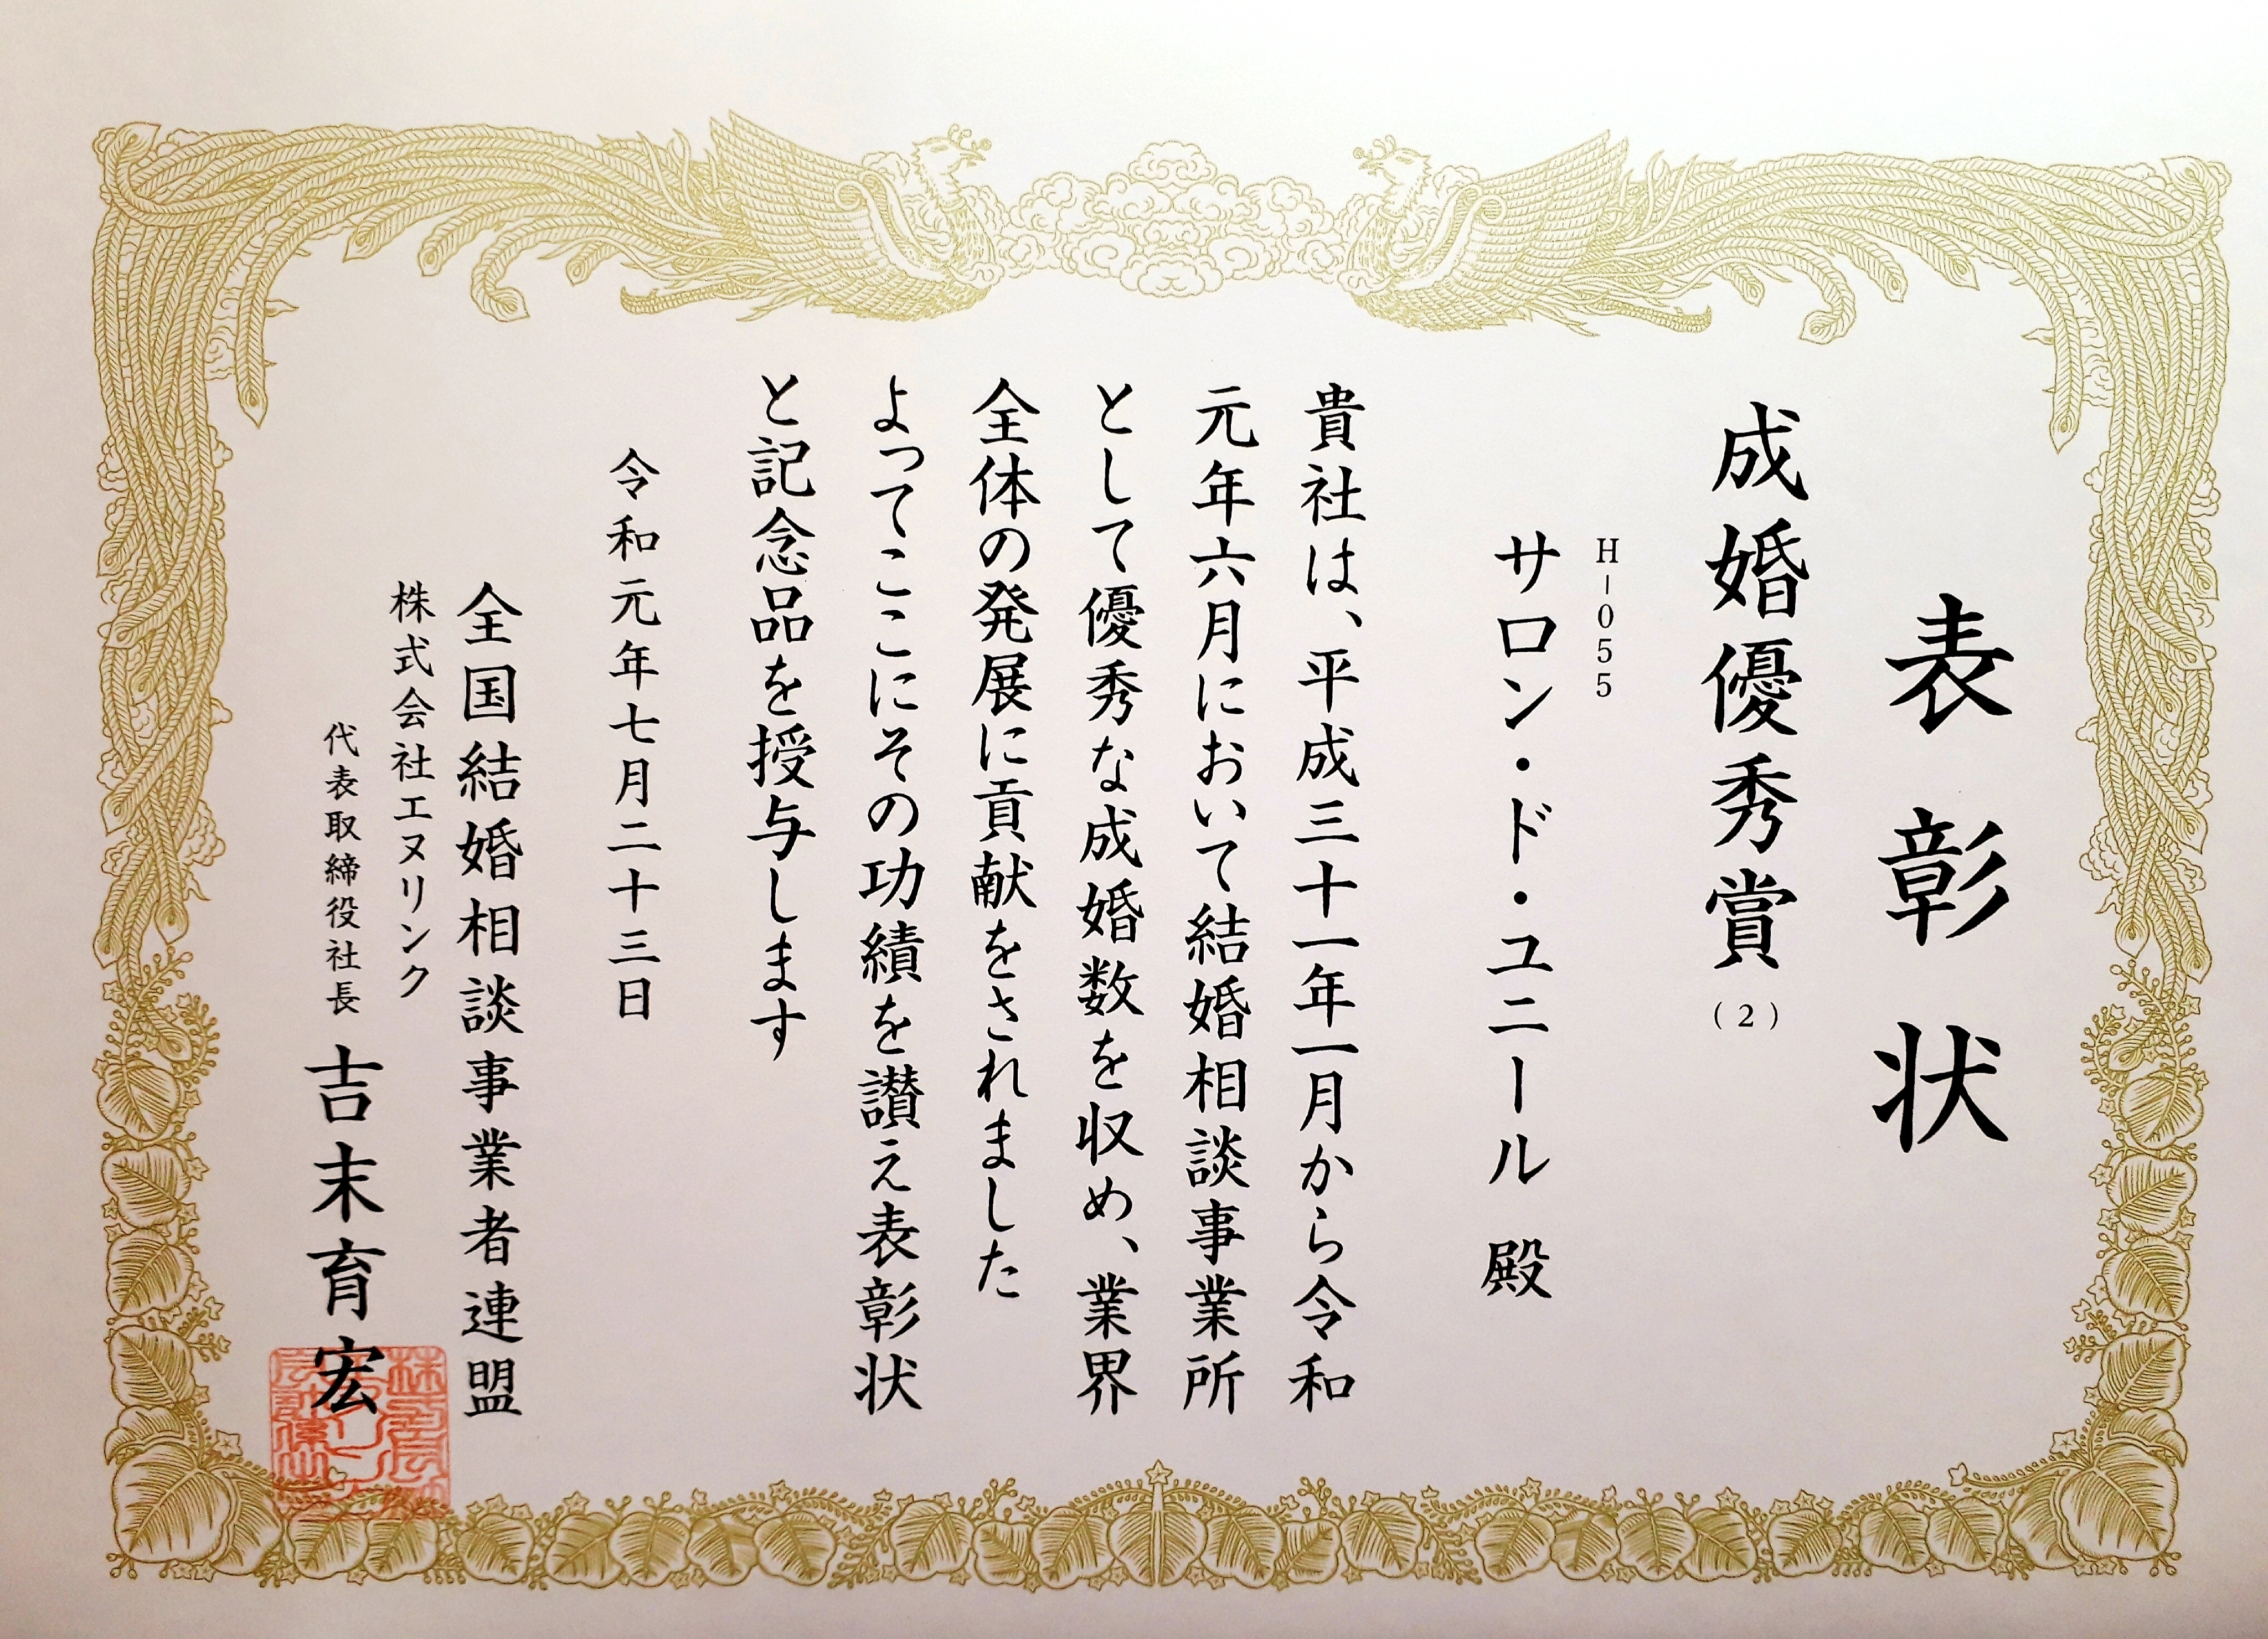 表彰状
成婚優秀賞(2)
H-055
サロン・ド・ユニール 殿
貴社は、平成三十一年一月から令和
元年六月において結婚相談事業所
として優秀な成婚数を収め、業界
全体の発展に貢献をされました
よってここにその功績を讃え表彰状
と記念品を授与します
令和元年七月二十三日
全国結婚相談事業者連盟
株式会社エヌリンク
代表取締役社長 吉末育宏